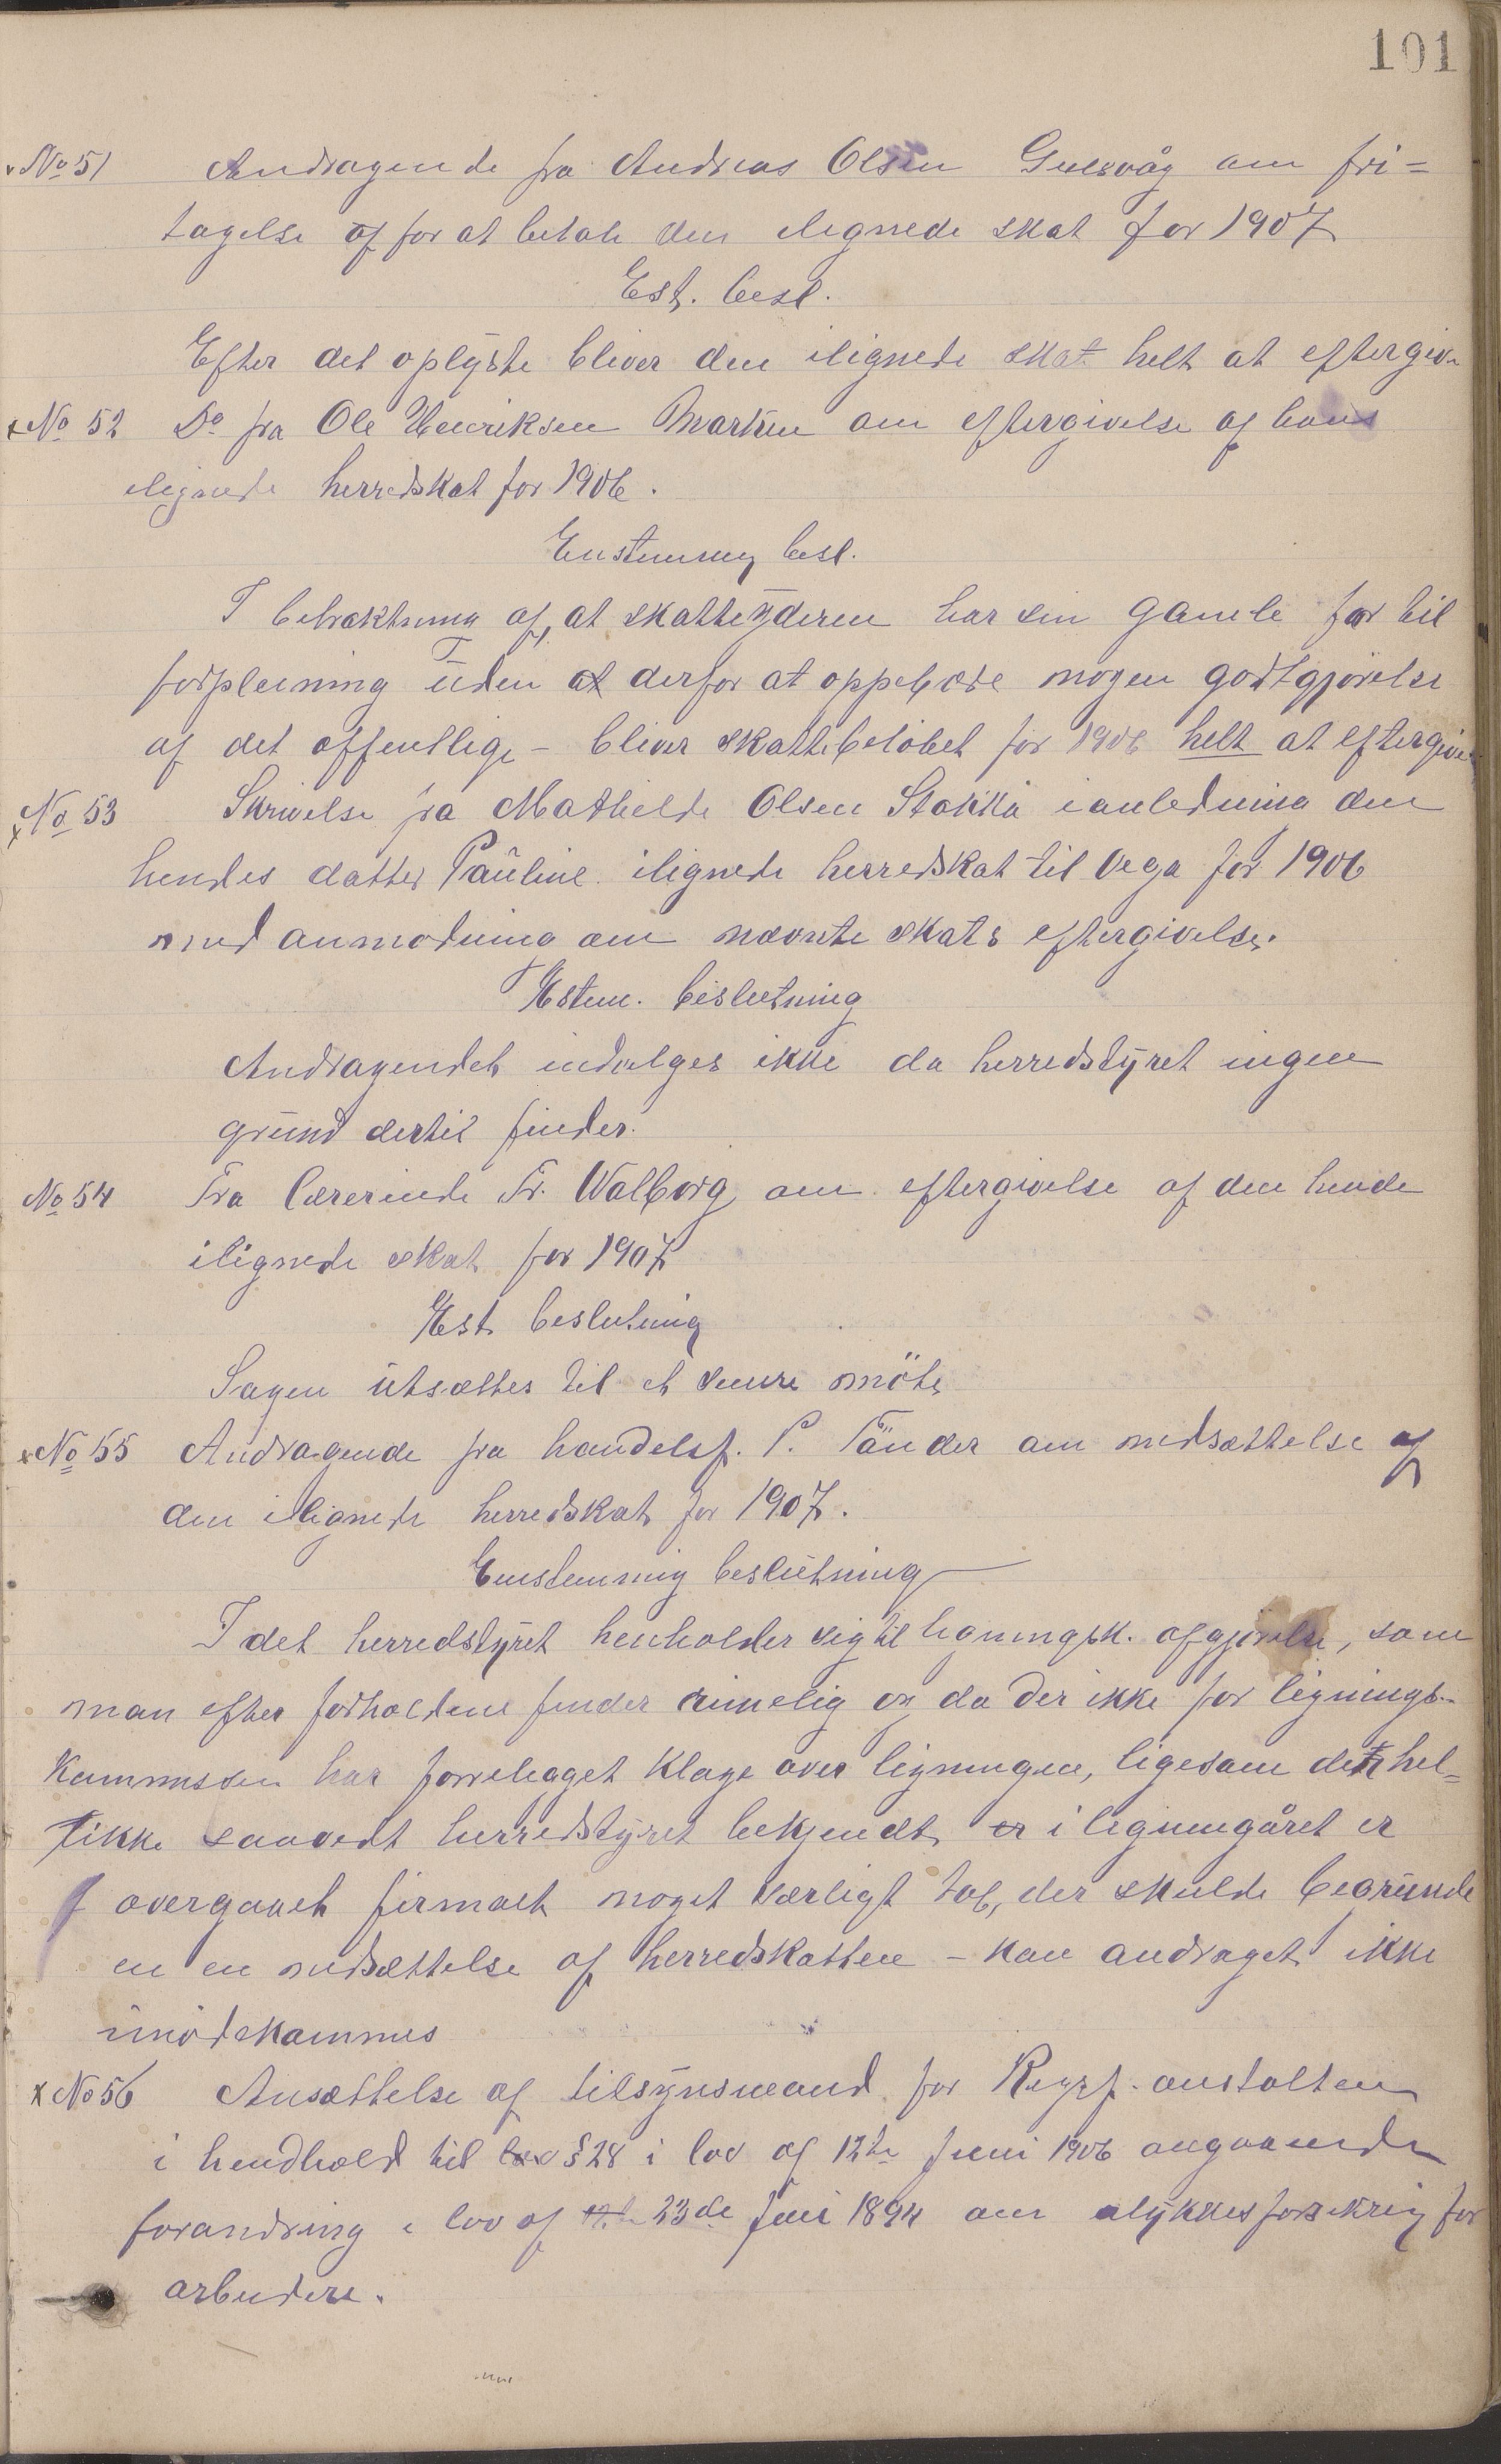 101
No 51 Andragende fra Andreas Olsen Gulsvåg om fri=
tagelse af for at betale den ilegnede skat for 1907
Est. besl.
Efter det oplyste bliver den ilignede skat helt at eftergive
No 52 Do fra Ole Henriksen Marken om eftergivelse af hans
ilignede herredskat for 1906.
Enstemmig besl.
I betraktning af, at skatteyderen har sin gamle far til
forpleining uden at derfor at oppebære nogen godtgjørelse
af det offentlige - bliver skattebeløbet for 1906 helt at eftergive
No 53 Skrivelse fra Mathilde Olsen Stokka i anledning den
hendes datter Pauline ilignede herredskat til Vega for 1906
med anmodning om nævnte skats eftergivelse.
Estem. beslutning
Andragendet indvilges ikke da herredstyret ingen
grund dertil finder.
No 54 Fra lærerinde Fr. Walborg om eftergivelse af den hende
ilignede skat for 1907
Est beslutning
Sagen utsættes til et senere möte
No 55 Andragende fra handelsf. P. Tänder om nedsættelse af
den ilignede herredskat for 1907.
Enstemmig beslutning
I det herredstyret henholder sig til ligningsk. afgjørelse, som
man efter forholdene finder rimelig og da der ikke for lignings-
kommissen har forreliaget klage over ligningen, ligesom det hel=
ikke saavidt herredstyret bekjendt er i ligningåret er
overgaaet firmaet noget særligt tab, der skulde begrunde
en en nedsættelse af herredskatten - kan andraget ikke
imødekommes
No 56 Ansættelse af tilsynsmand for Rigsf. anstalten
i hendhold til lov § 28 i lov af 12te Juni 1906 angaaende
forandring i lov af 23de Juli 1894 om ulykkesforsikrig for
arbeidere.